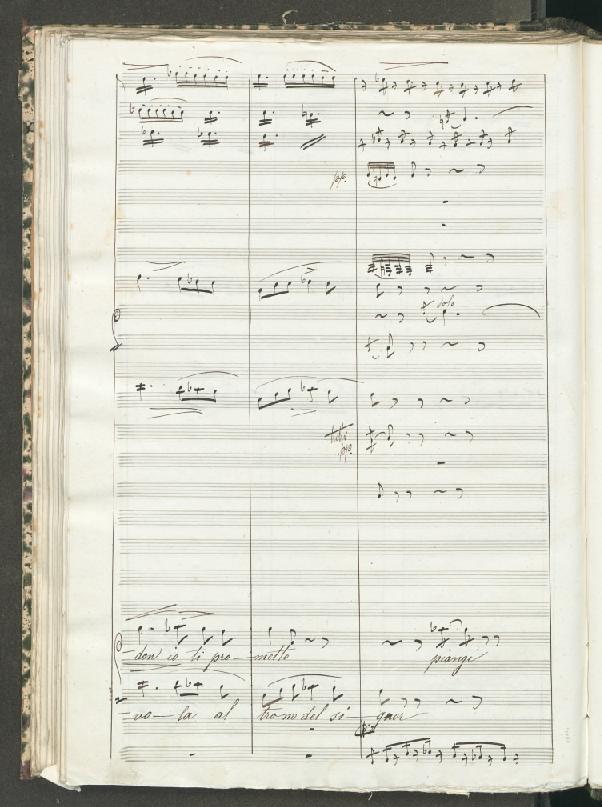 ppp.
solo
tutti
ppp.
don io ti pro-metto piangi
vo-la al trono del si gnor